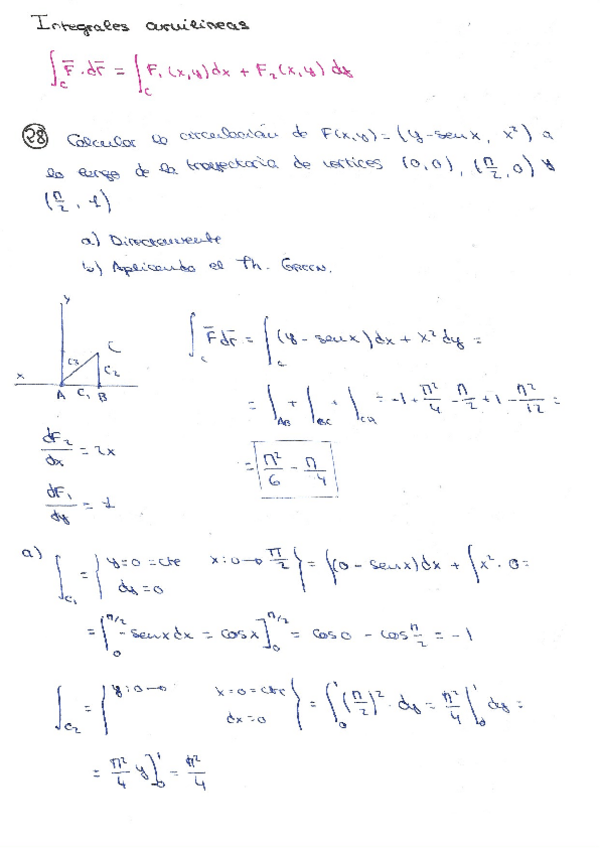 Integrales curvilineas
∫_C F̄·dr̄ = ∫_C F₁(x,y)dx + F₂(x,y)dy
28 Calcular la circulación de F(x,y) = (y-senx, x²) a
lo largo de la trayectoria de vertices (0,0), (π/2, 0) y
(π/2, 1)
a) Directamente
b) Aplicando el Th. GREEN.
y
x
A C₁ B
C₃ C₂ C
∫_C F̄dr̄ = ∫_C (y - senx)dx + x²dy =
= ∫_AB + ∫_BC + ∫_CA = -1 + π²/4 - π/4 + 1 - π²/12 =
= π²/6 - π/4
dF₂/dx = 2x
dF₁/dy = 1
a) ∫_C₁ = { y=0=cte x:0→π/2 dy=0 } = ∫(0 - senx)dx + ∫x²·0 =
= ∫₀^π/2 -senxdx = cosx]₀^π/2 = cos0 - cosπ/2 = -1
∫_C₂ = { y:0→0 x=0=cte dx=0 } = ∫₀¹ (π/2)²·dy = π²/4 ∫₀¹ dy =
= π²/4 y]₀¹ = π²/4